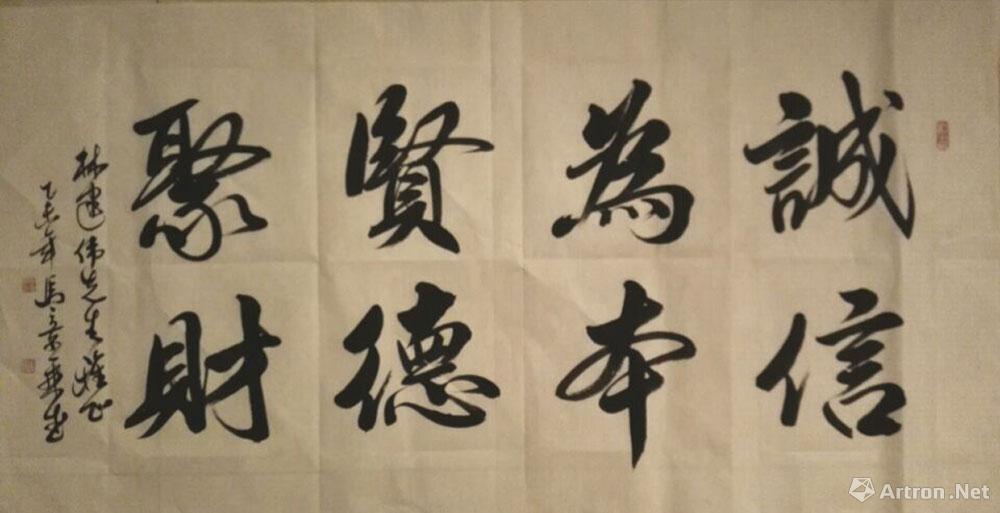 誠信
為本
賢德
聚財
林建伟先生雅正
乙未年馬景泉书
Artron.Net